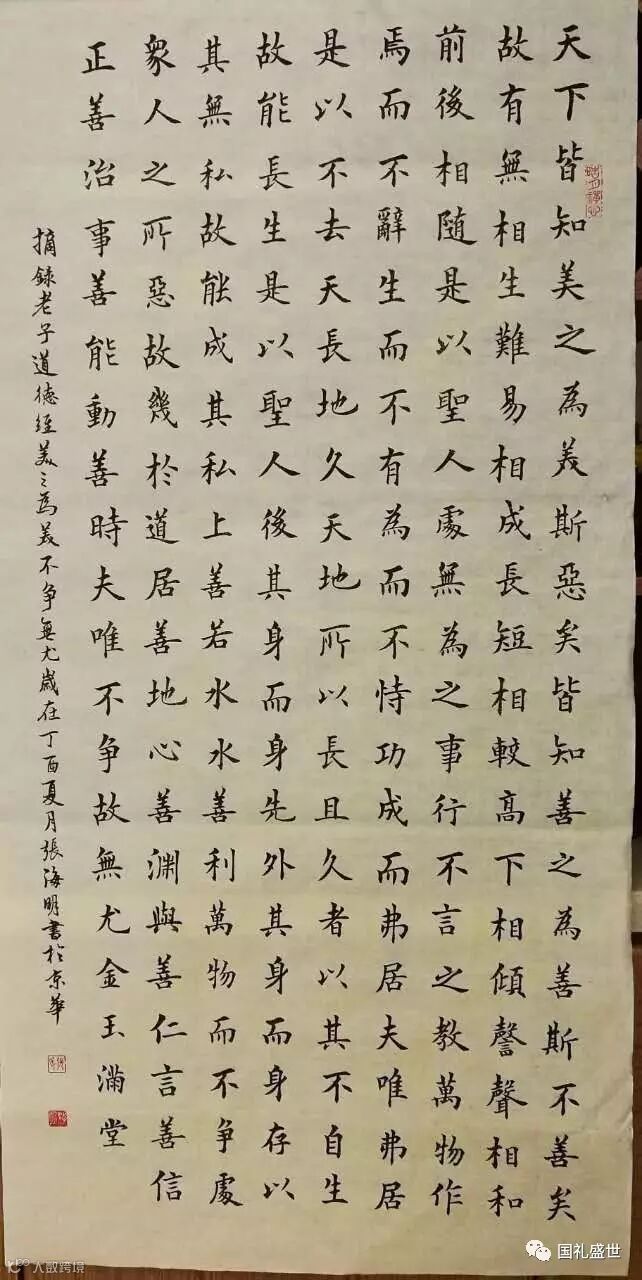 天下皆知美之為美斯惡矣皆知善之為善斯不善矣
故有無相生難易相成長短相較高下相傾謦聲相和
前後相随是以聖人處無為之事行不言之教萬物作
焉而不辭生而不有為而不恃功成而弗居夫唯弗居
是以不去天長地久天地所以長且久者以其不自生
故能長生是以聖人後其身而身先外其身而身存以
其無私故能成其私上善若水水善利萬物而不争處
衆人之所惡故幾於道居善地心善渊與善仁言善信
正善治事善能動善時夫唯不争故無尤金玉滿堂
摘錄老子道德經美之為美不争無尤歲在丁酉夏月張海明書於京華
国礼盛世
大数跨境